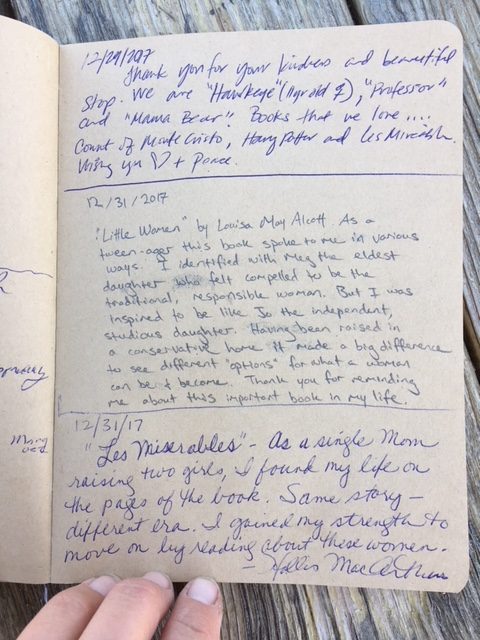 12/29/2017
Thank you for your kindness and beautiful
stop. We are "Hawkeye" (
), "Professor"
and "Mama Bear". Books that we love ....
Count of Monte Cristo, Harry Potter and Les Miserables.
Wishing you ♡ + Peace.
12/31/2017
"Little Women" by Louisa May Alcott. As a
tween-ager this book spoke to me in various
ways. I identified with Meg the eldest
daughter who felt compelled to be the
traditional, responsible woman. But I was
inspired to be like Jo the independent,
studious daughter. Having been raised in
a conservative home it made a big difference
to see different "options" for what a woman
can be & become. Thank you for reminding
me about this important book in my life.
12/31/17
"Les Miserables" - As a single Mom
raising two girls, I found my life on
the pages of the book. Same story -
different era. I gained my strength to
move on by reading about these women.
- Hollis MacArthur